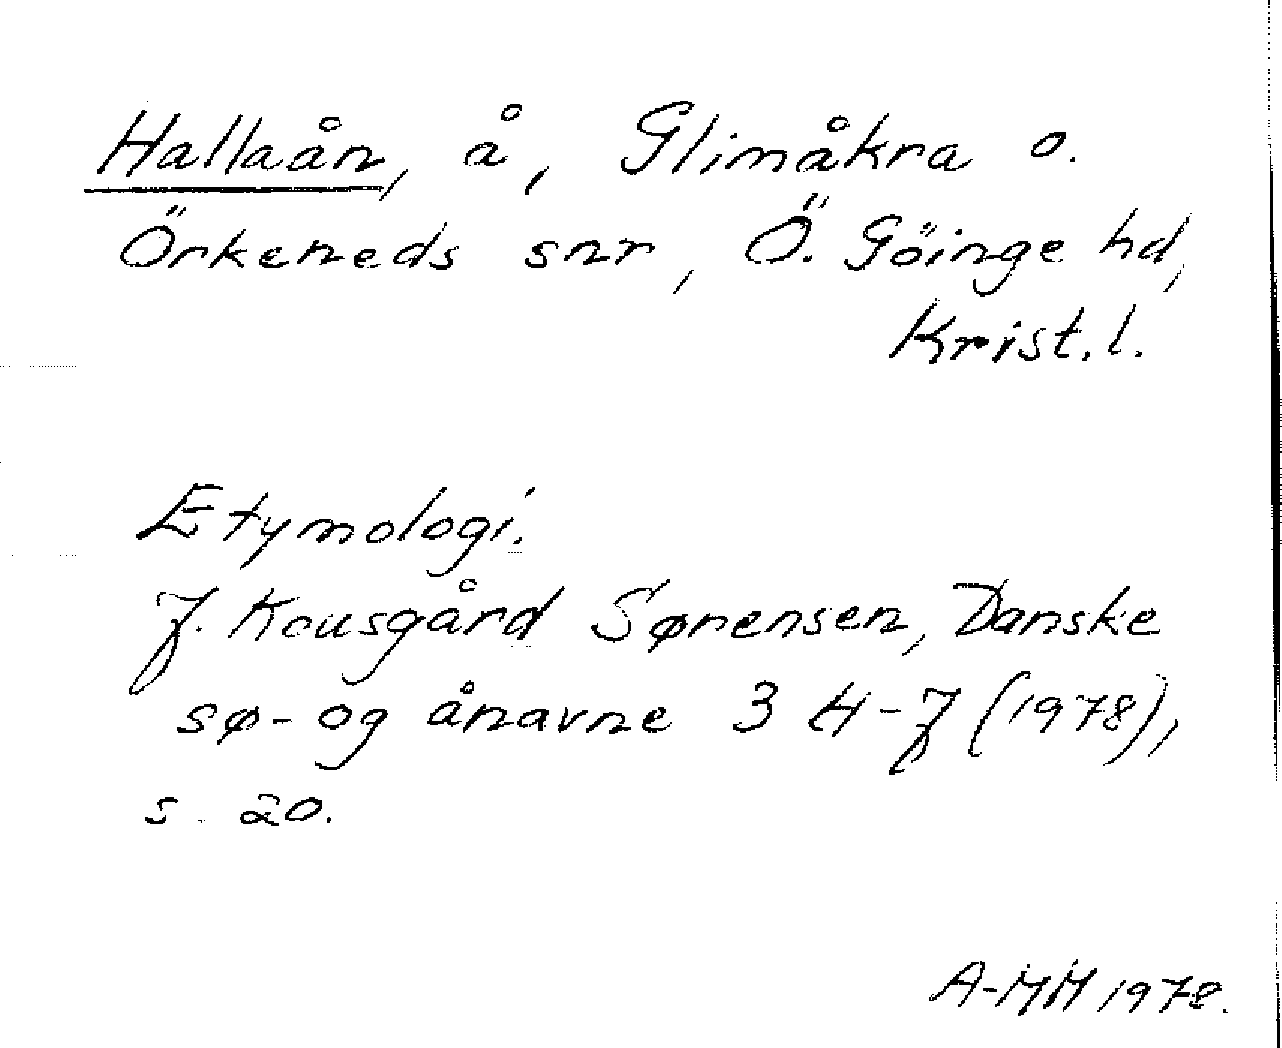 Hallaån, å, Glimåkra o.
Örkeneds snr, Ö. Göinge hd,
Krist. l.
Etymologi.
J. Kousgård Sørensen, Danske
sø- og ånavne 3 H-J (1978),
s. 20.
A-MH 1978.